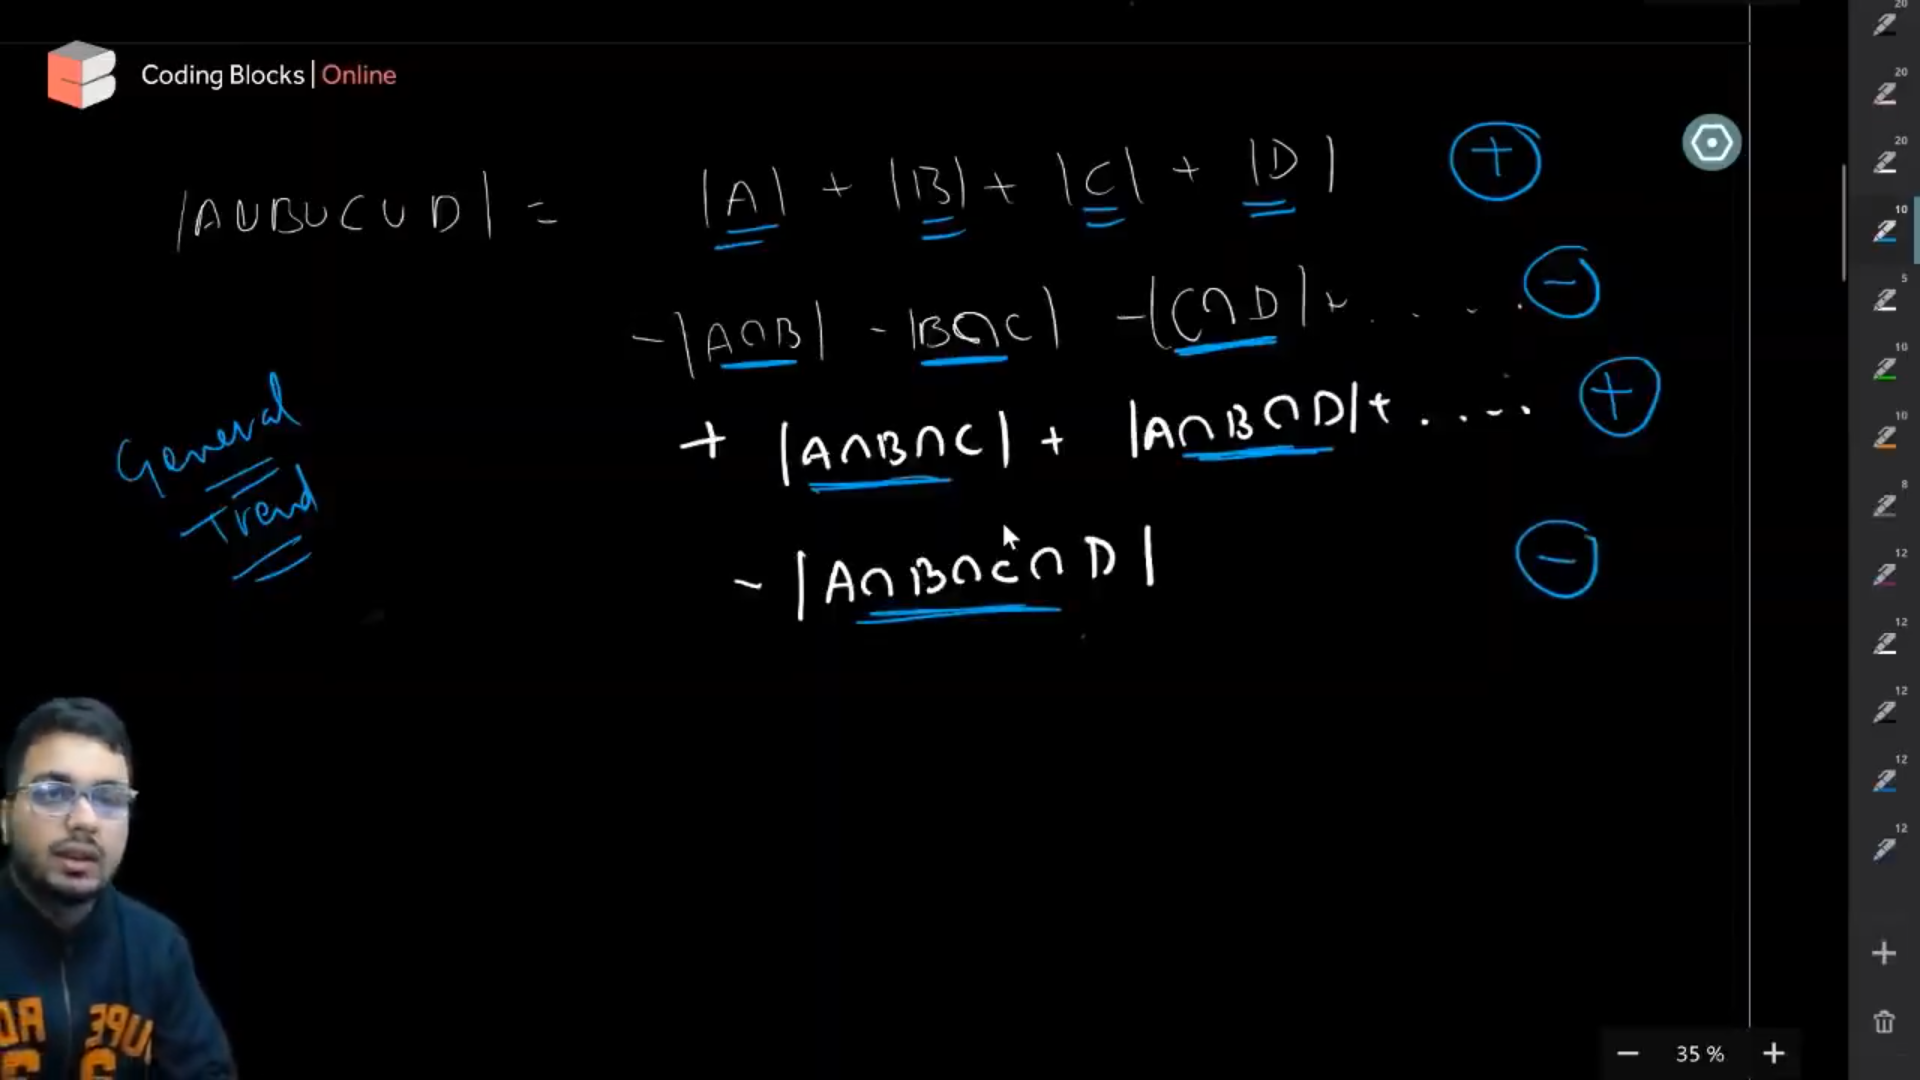 Coding Blocks | Online
|A∪B∪C∪D| = |A| + |B| + |C| + |D| +
-|A∩B| - |B∩C| -|C∩D|+ ..... -
+ |A∩B∩C| + |A∩B∩D|+ ..... +
General
Trend
- |A∩B∩C∩D| -
20
20
20
10
5
10
10
8
12
12
12
12
12
− 35 % +